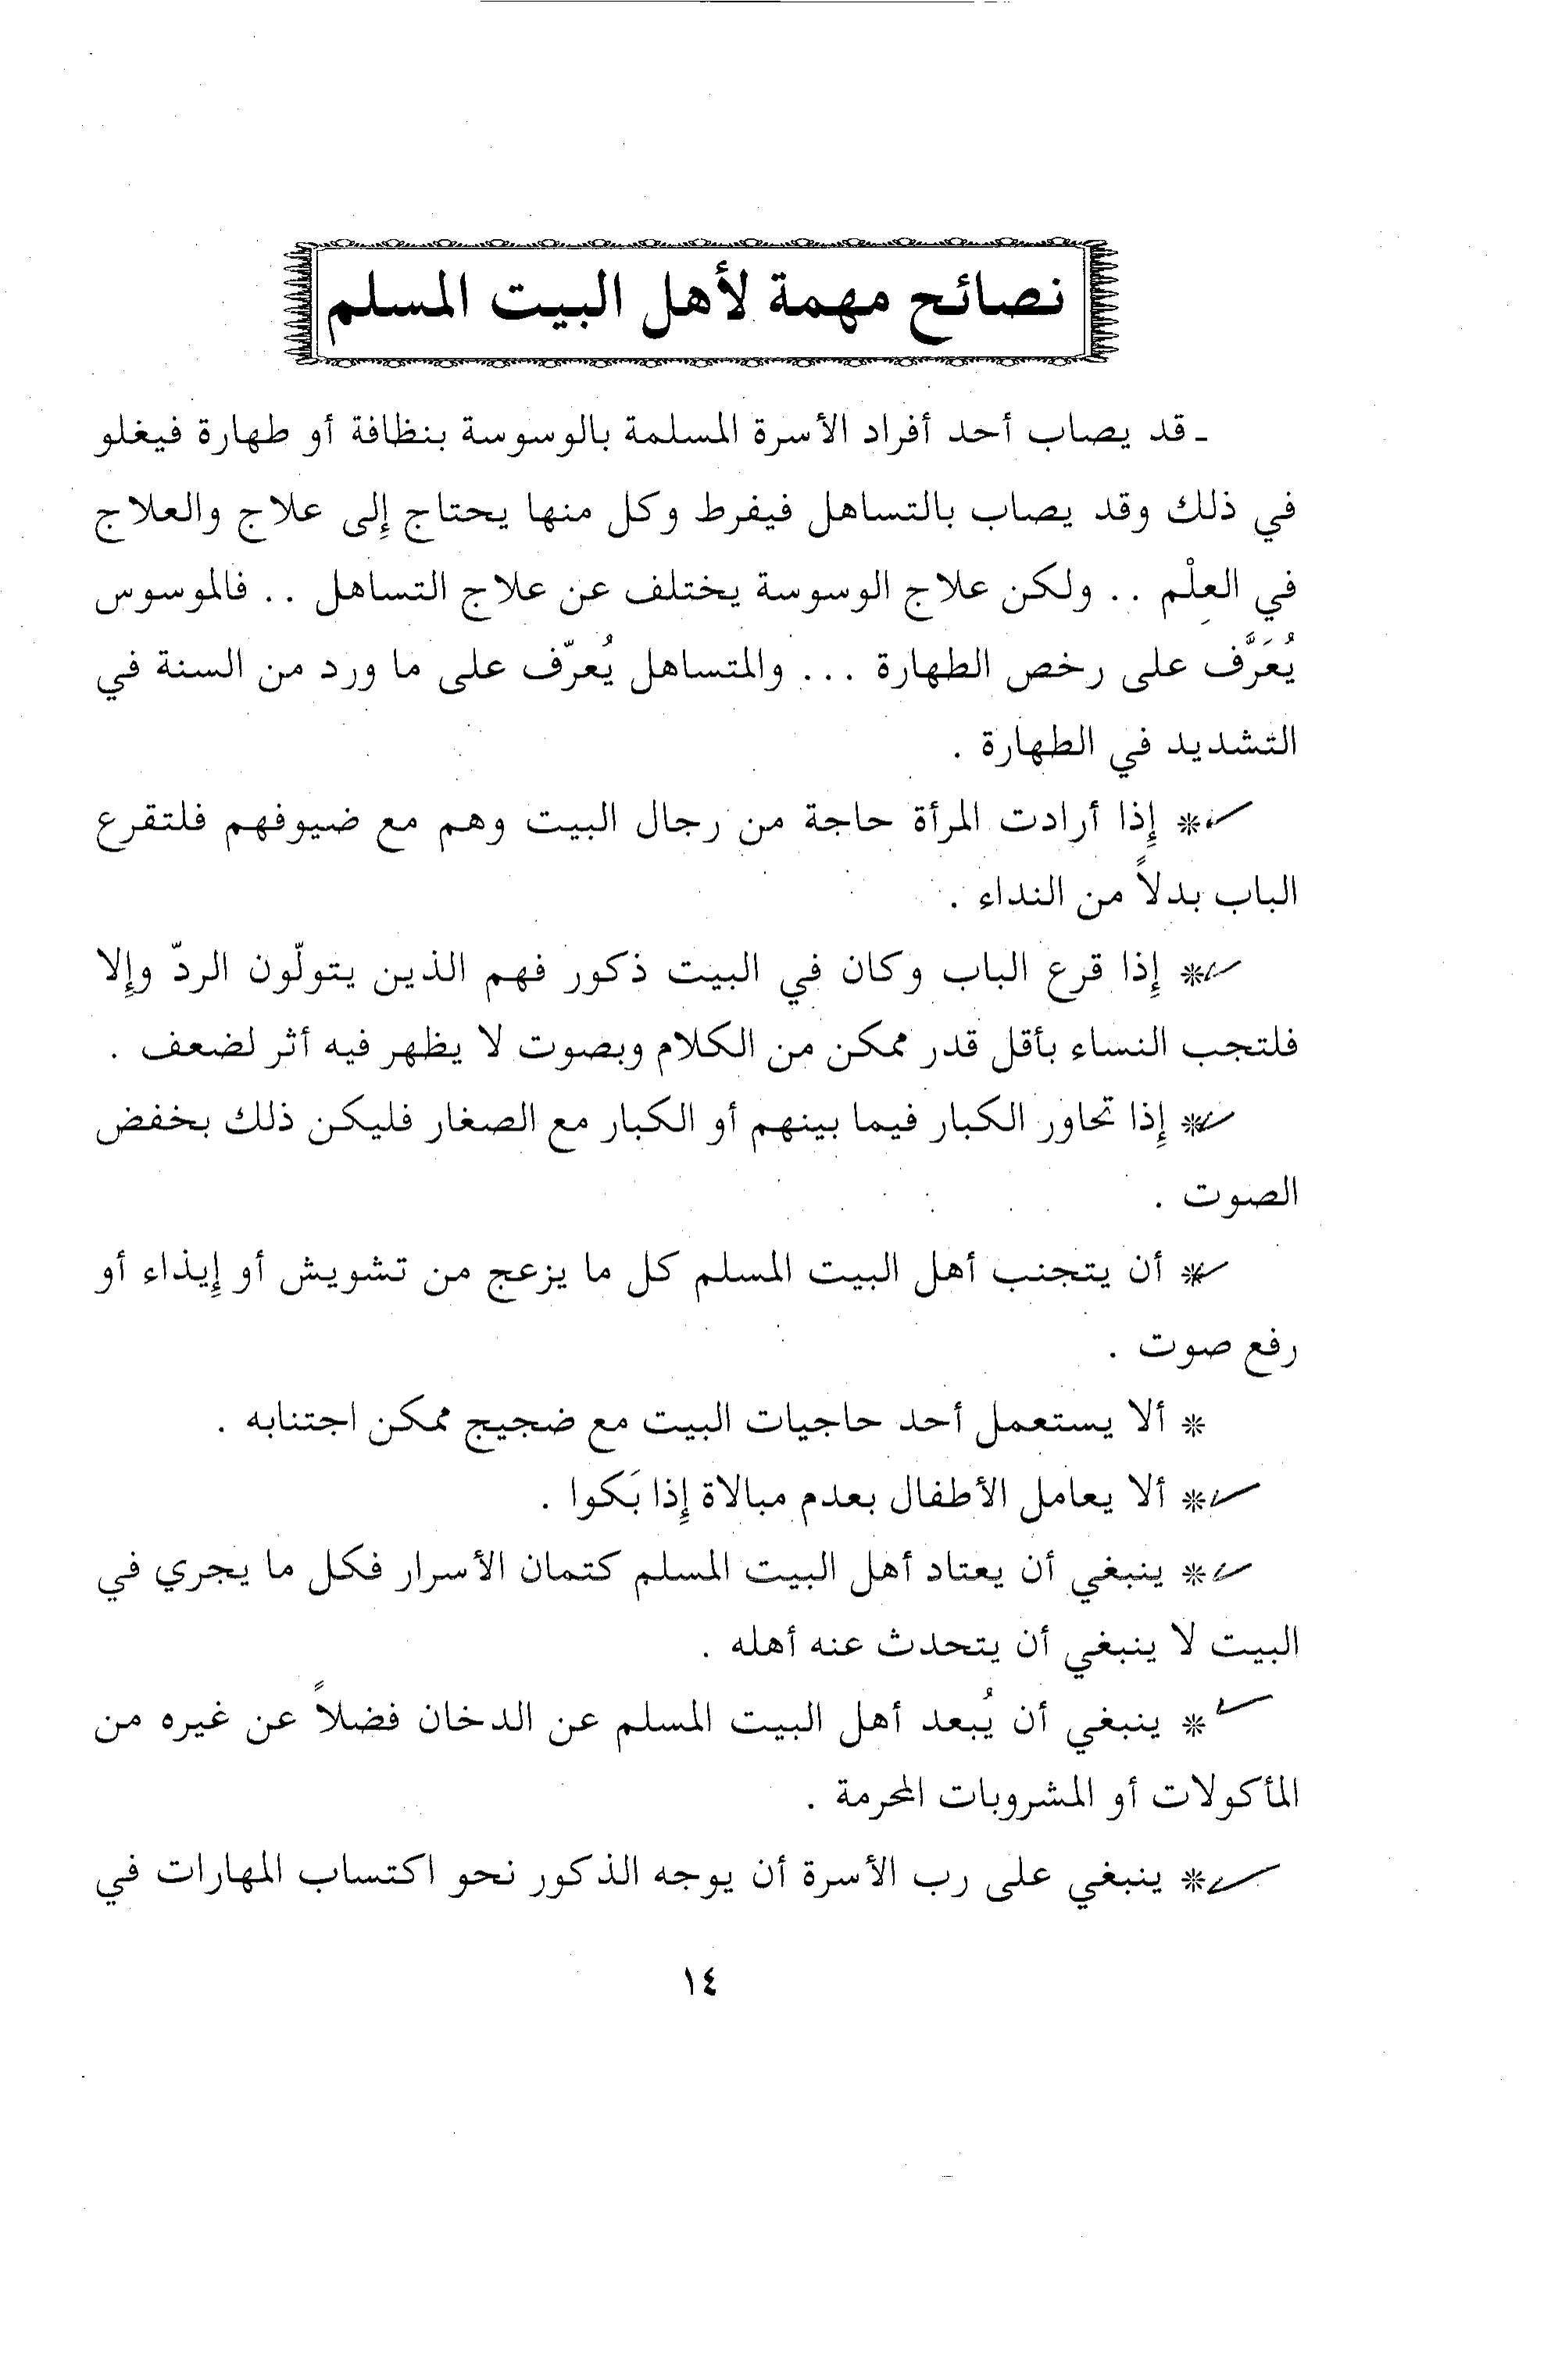 نصائح مهمة لأهل البيت المسلم
ـ قد يصاب أحد أفراد الأسرة المسلمة بالوسوسة بنظافة أو طهارة فيغلو
في ذلك وقد يصاب بالتساهل فيفرط وكل منها يحتاج إلى علاج والعلاج
في العِلْم .. ولكن علاج الوسوسة يختلف عن علاج التساهل .. فالموسوس
يُعَرَّف على رخص الطهارة ... والمتساهل يُعرّف على ما ورد من السنة في
التشديد في الطهارة .
* إِذا أرادت المرأة حاجة من رجال البيت وهم مع ضيوفهم فلتقرع
الباب بدلاً من النداء .
* إِذا قرع الباب وكان في البيت ذكور فهم الذين يتولّون الردّ وإِلا
فلتجب النساء بأقل قدر ممكن من الكلام وبصوت لا يظهر فيه أثر لضعف .
* إِذا تحاور الكبار فيما بينهم أو الكبار مع الصغار فليكن ذلك بخفض
الصوت .
* أن يتجنب أهل البيت المسلم كل ما يزعج من تشويش أو إِيذاء أو
رفع صوت .
* ألا يستعمل أحد حاجيات البيت مع ضجيج ممكن اجتنابه .
* ألا يعامل الأطفال بعدم مبالاة إِذا بَكوا .
* ينبغي أن يعتاد أهل البيت المسلم كتمان الأسرار فكل ما يجري في
البيت لا ينبغي أن يتحدث عنه أهله .
* ينبغي أن يُبعد أهل البيت المسلم عن الدخان فضلاً عن غيره من
المأكولات أو المشروبات المحرمة .
* ينبغي على رب الأسرة أن يوجه الذكور نحو اكتساب المهارات في
١٤